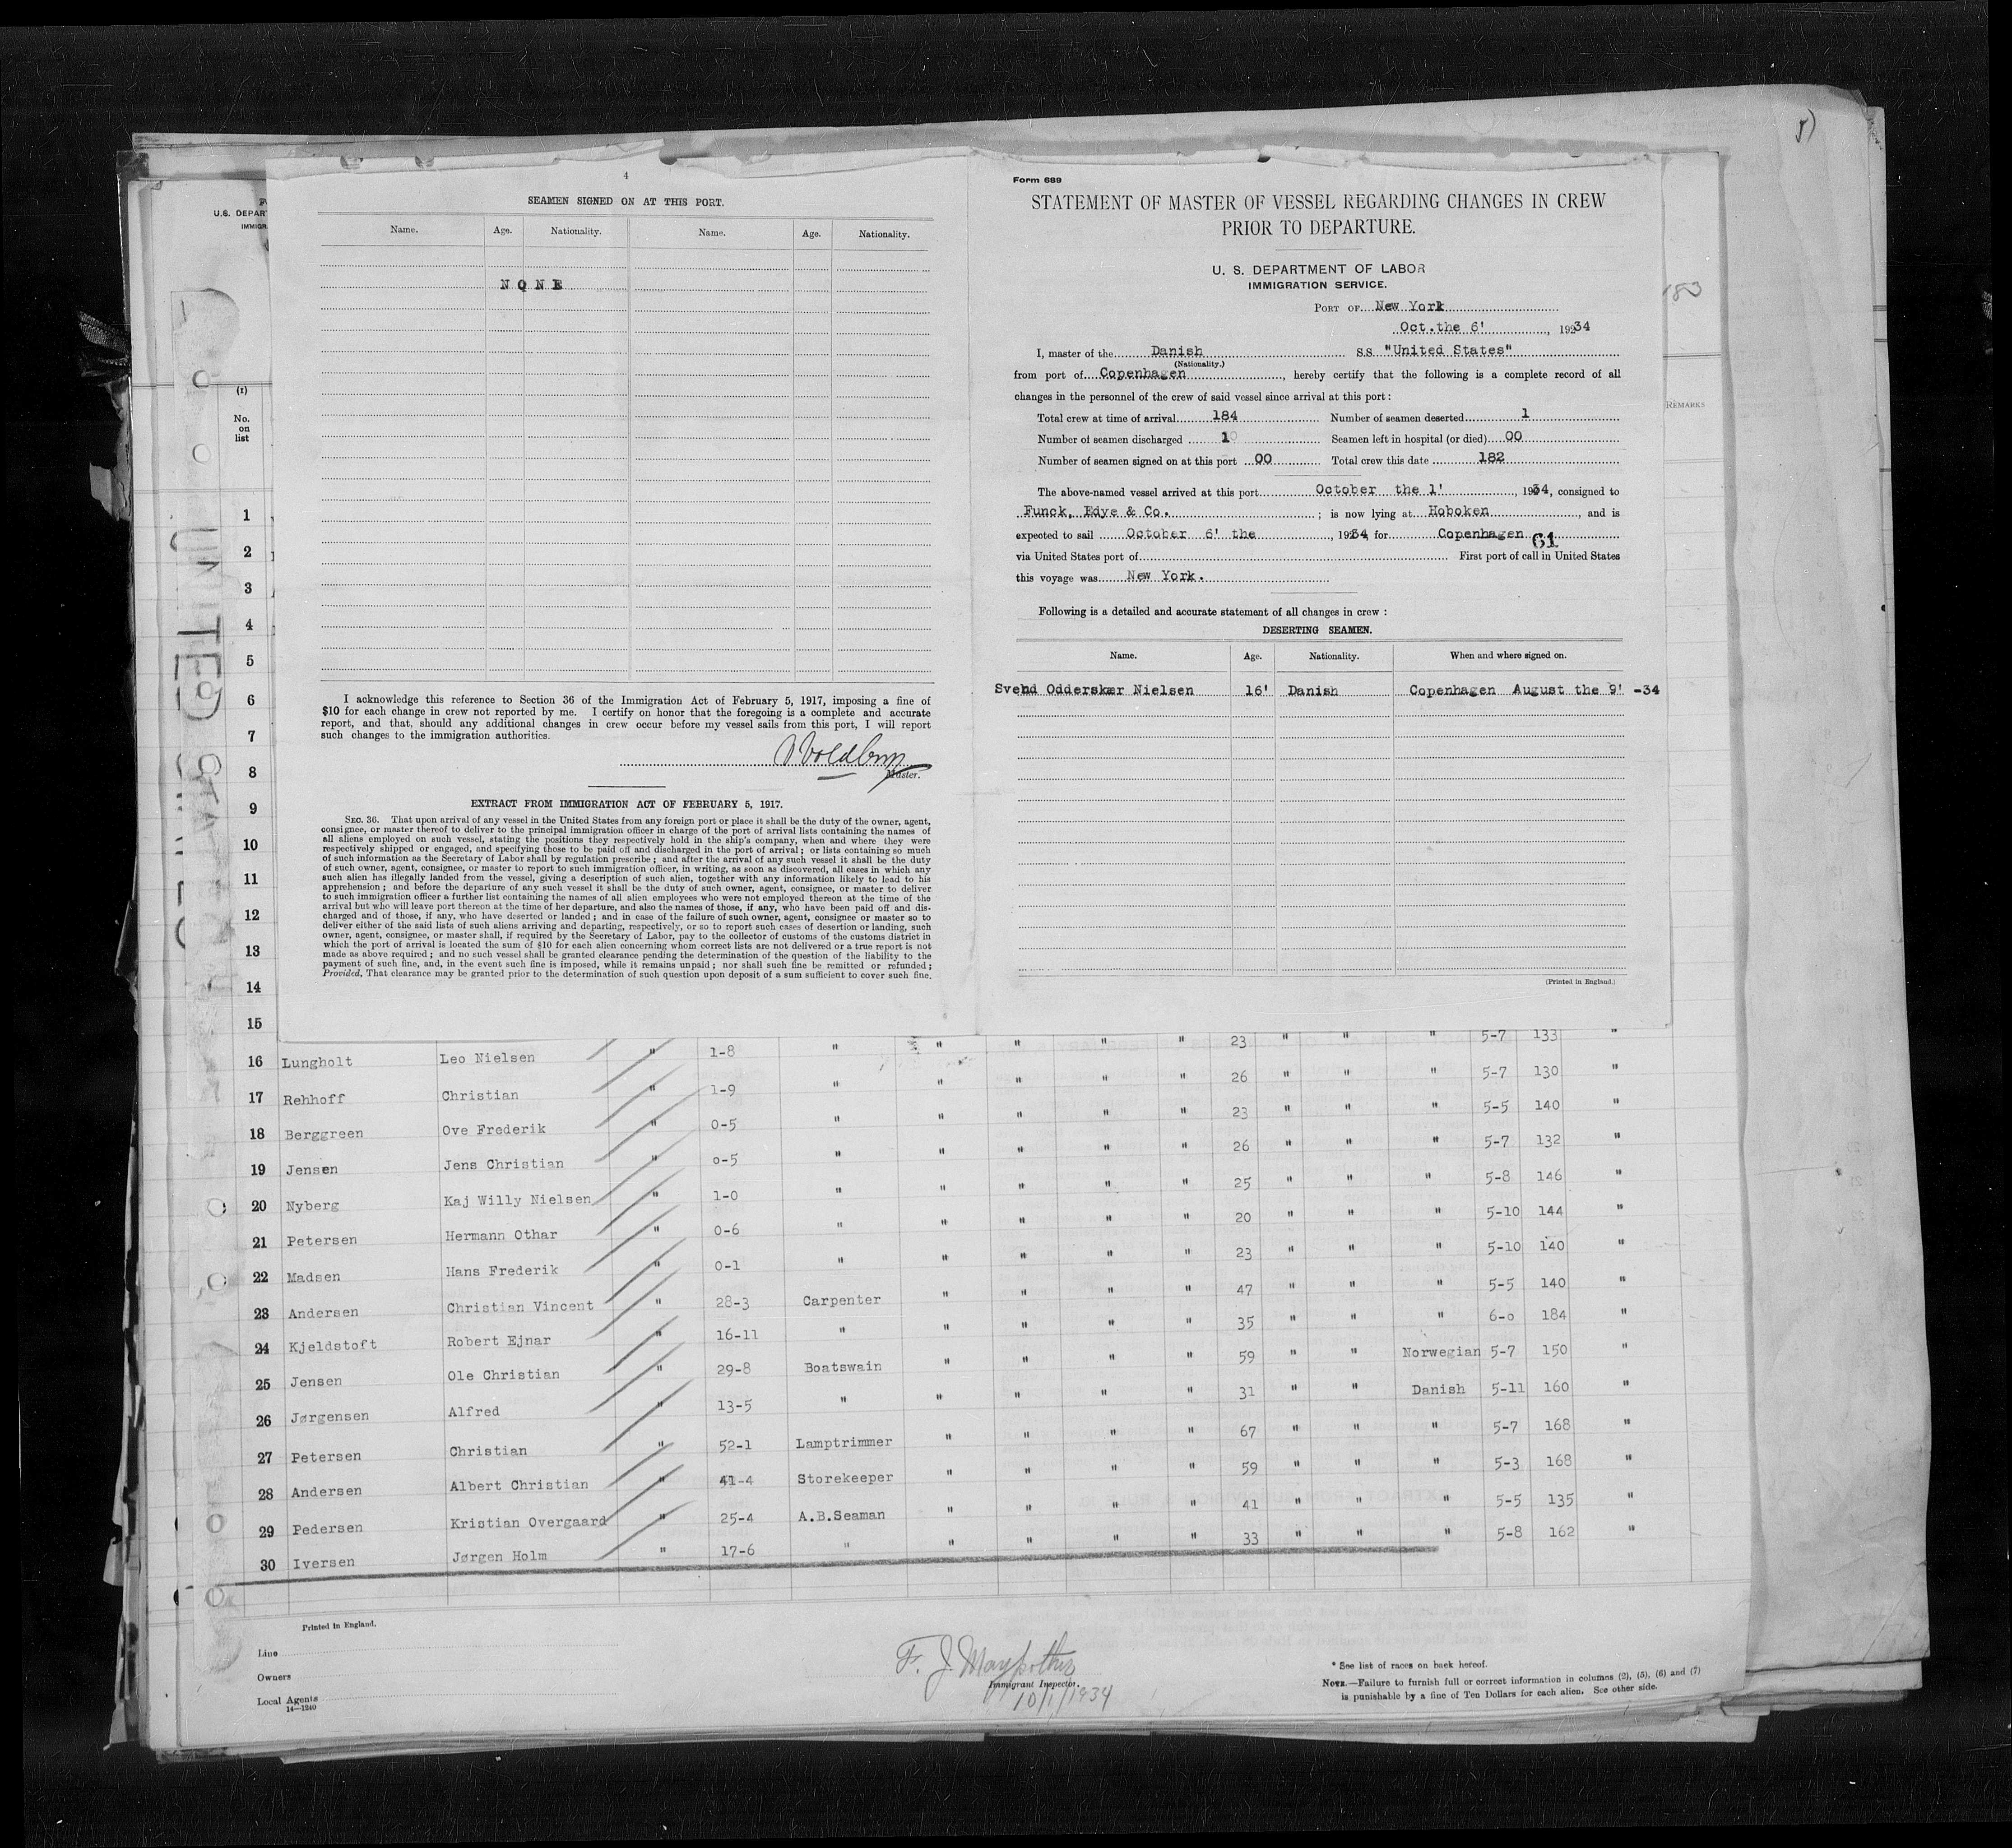 4
SEAMEN SIGNED ON AT THIS PORT.
Name. Age. Nationality. Name. Age. Nationality.
NONE
I acknowledge this reference to Section 36 of the Immigration Act of February 5, 1917, imposing a fine of
$10 for each change in crew not reported by me. I certify on honor that the foregoing is a complete and accurate
report, and that, should any additional changes in crew occur before my vessel sails from this port, I will report
such changes to the immigration authorities.
Master.
EXTRACT FROM IMMIGRATION ACT OF FEBRUARY 5, 1917.
SEC. 36. That upon arrival of any vessel in the United States from any foreign port or place it shall be the duty of the owner, agent,
consignee, or master thereof to deliver to the principal immigration officer in charge of the port of arrival lists containing the names of
all aliens employed on such vessel, stating the positions they respectively hold in the ship's company, when and where they were
respectively shipped or engaged, and specifying those to be paid off and discharged in the port of arrival; or lists containing so much
of such information as the Secretary of Labor shall by regulation prescribe; and after the arrival of any such vessel it shall be the duty
of such owner, agent, consignee, or master to report to such immigration officer, in writing, as soon as discovered, all cases in which any
such alien has illegally landed from the vessel, giving a description of such alien, together with any information likely to lead to his
apprehension; and before the departure of any such vessel it shall be the duty of such owner, agent, consignee, or master to deliver
to such immigration officer a further list containing the names of all alien employees who were not employed thereon at the time of the
arrival but who will leave port thereon at the time of her departure, and also the names of those, if any, who have been paid off and dis-
charged and of those, if any, who have deserted or landed; and in case of the failure of such owner, agent, consignee or master so to
deliver either of the said lists of such aliens arriving and departing, respectively, or so to report such cases of desertion or landing, such
owner, agent, consignee, or master shall, if required by the Secretary of Labor, pay to the collector of customs of the customs district in
which the port of arrival is located the sum of $10 for each alien concerning whom correct lists are not delivered or a true report is not
made as above required; and no such vessel shall be granted clearance pending the determination of the question of the liability to the
payment of such fine, and, in the event such fine is imposed, while it remains unpaid; nor shall such fine be remitted or refunded;
Provided, That clearance may be granted prior to the determination of such question upon deposit of a sum sufficient to cover such fine.
Form 689
STATEMENT OF MASTER OF VESSEL REGARDING CHANGES IN CREW
PRIOR TO DEPARTURE.
U. S. DEPARTMENT OF LABOR
IMMIGRATION SERVICE.
PORT OF New York
Oct.the 6' , 1934
I, master of the Danish SS "United States"
(Nationality.)
from port of Copenhagen, hereby certify that the following is a complete record of all
changes in the personnel of the crew of said vessel since arrival at this port:
Total crew at time of arrival 184 Number of seamen deserted 1
Number of seamen discharged 1 Seamen left in hospital (or died) 00
Number of seamen signed on at this port 00 Total crew this date 182
The above-named vessel arrived at this port October the 1' , 1934, consigned to
Funck, Edye & Co. ; is now lying at Hoboken, and is
expected to sail October 6' the , 1934 for Copenhagen 61
via United States port of First port of call in United States
this voyage was New York.
Following is a detailed and accurate statement of all changes in crew:
DESERTING SEAMEN.
Name. Age. Nationality. When and where signed on.
Svend Odderskær Nielsen 16' Danish Copenhagen August the 9' -34
(Printed in England.)
5)
183
REMARKS
U.S. DEPART
IMMIGR
(1)
No.
on
list
UNITED STA
1
2
3
4
5
6
7
8
9
10
11
12
13
14
15 " " " " " 23 " " " 5-7 133 "
16 Lungholt Leo Nielsen " 1-8 " " " " " 26 " " " 5-7 130 "
17 Rehhoff Christian " 1-9 " " " " " 23 " " " 5-5 140 "
18 Berggreen Ove Frederik " 0-5 " " " " " 26 " " " 5-7 132 "
19 Jensen Jens Christian " 0-5 " " " " " 25 " " " 5-8 146 "
20 Nyberg Kaj Willy Nielsen " 1-0 " " " " " 20 " " " 5-10 144 "
21 Petersen Hermann Othar " 0-6 " " " " " 23 " " " 5-10 140 "
22 Madsen Hans Frederik " 0-1 " " " " " 47 " " " 5-5 140 "
23 Andersen Christian Vincent " 28-3 Carpenter " " " " 35 " " " 6-0 184 "
24 Kjeldstoft Robert Ejnar " 16-11 " " " " " 59 " " Norwegian 5-7 150 "
25 Jensen Ole Christian " 29-8 Boatswain " " " " 31 " " Danish 5-11 160 "
26 Jørgensen Alfred " 13-5 " " " " " 67 " " " 5-7 168 "
27 Petersen Christian " 52-1 Lamptrimmer " " " " 59 " " " 5-3 168 "
28 Andersen Albert Christian " 41-4 Storekeeper " " " " 41 " " " 5-5 135 "
29 Pedersen Kristian Overgaard " 25-4 A.B.Seaman " " " " 33 " " " 5-8 162 "
30 Iversen Jørgen Holm " 17-6 "
Printed in England.
Line
Owners
Local Agents
14—1240
F. J. Maypother
Immigrant Inspector.
10/1/1934
* See list of races on back hereof.
NOTE.—Failure to furnish full or correct information in columns (2), (5), (6) and (7)
is punishable by a fine of Ten Dollars for each alien. See other side.